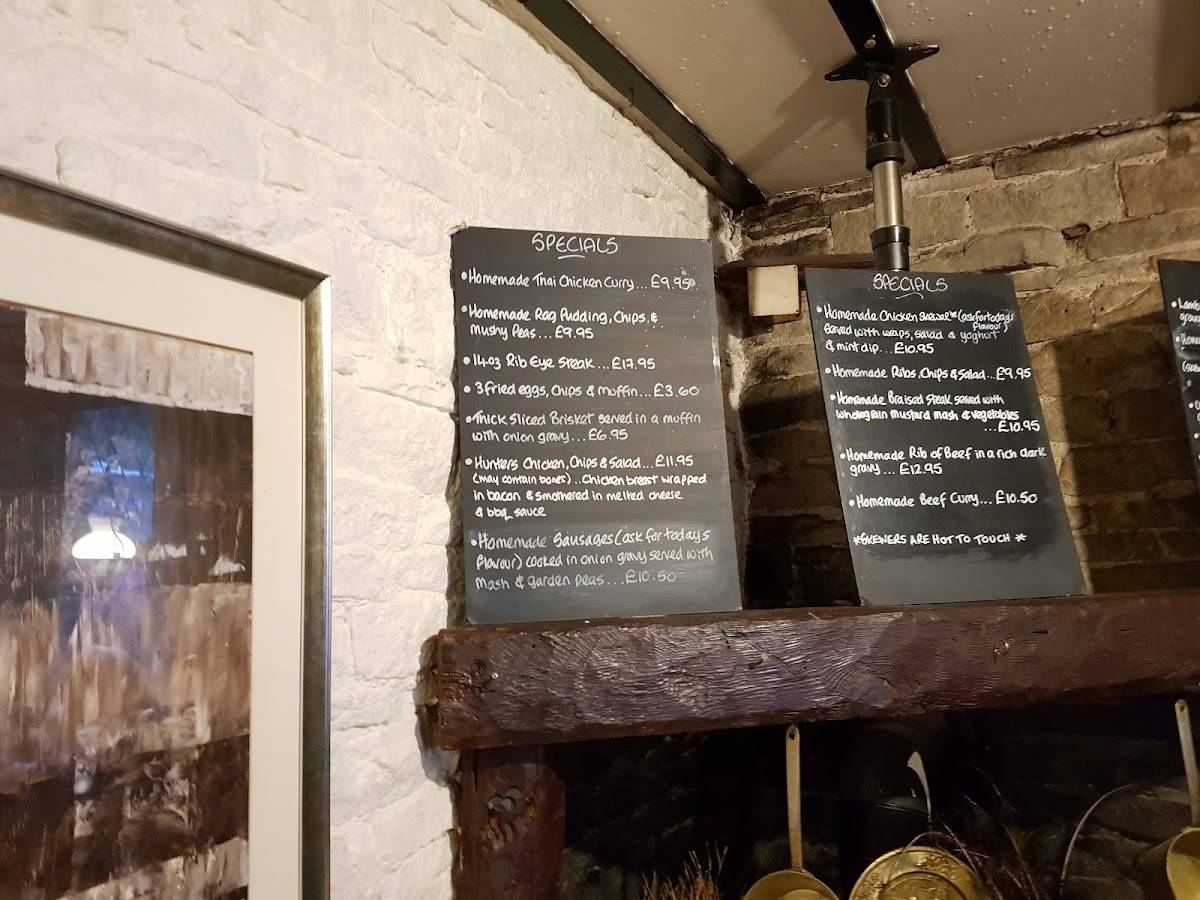 SPECIALS
• Homemade Thai Chicken Curry... £9.95
• Homemade Rag Pudding, Chips, &
mushy Peas... £9.95
• 14oz Rib Eye Steak... £17.95
• 3 fried eggs, Chips & muffin... £3.60
• Thick Sliced Brisket served in a muffin
with onion gravy... £6.95
• Hunters Chicken, Chips & Salad... £11.95
(may contain bones)..Chicken breast wrapped
in bacon & smothered in melted cheese
& bbq sauce
• Homemade Sausages (ask for todays
flavour) cooked in onion gravy served with
mash & garden peas... £10.50
SPECIALS
• Homemade Chicken (ask for todays
flavour)
served with wraps, salad & yoghurt
& mint dip... £10.95
• Homemade Ribs, Chips & Salad... £9.95
• Homemade Braised Steak served with
wholegrain mustard mash & vegetables
...£10.95
• Homemade Rib of Beef in a rich dark
gravy... £12.95
• Homemade Beef Curry... £10.50
*SKEWERS ARE HOT TO TOUCH *
• Lamb